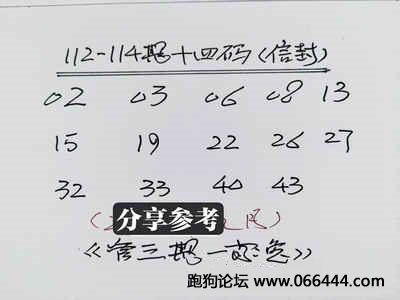 112-114期十四码(信封)
02 03 06 08 13
15 19 22 26 27
32 33 40 43
分享参考
《管三期一
跑狗论坛 www.066444.com